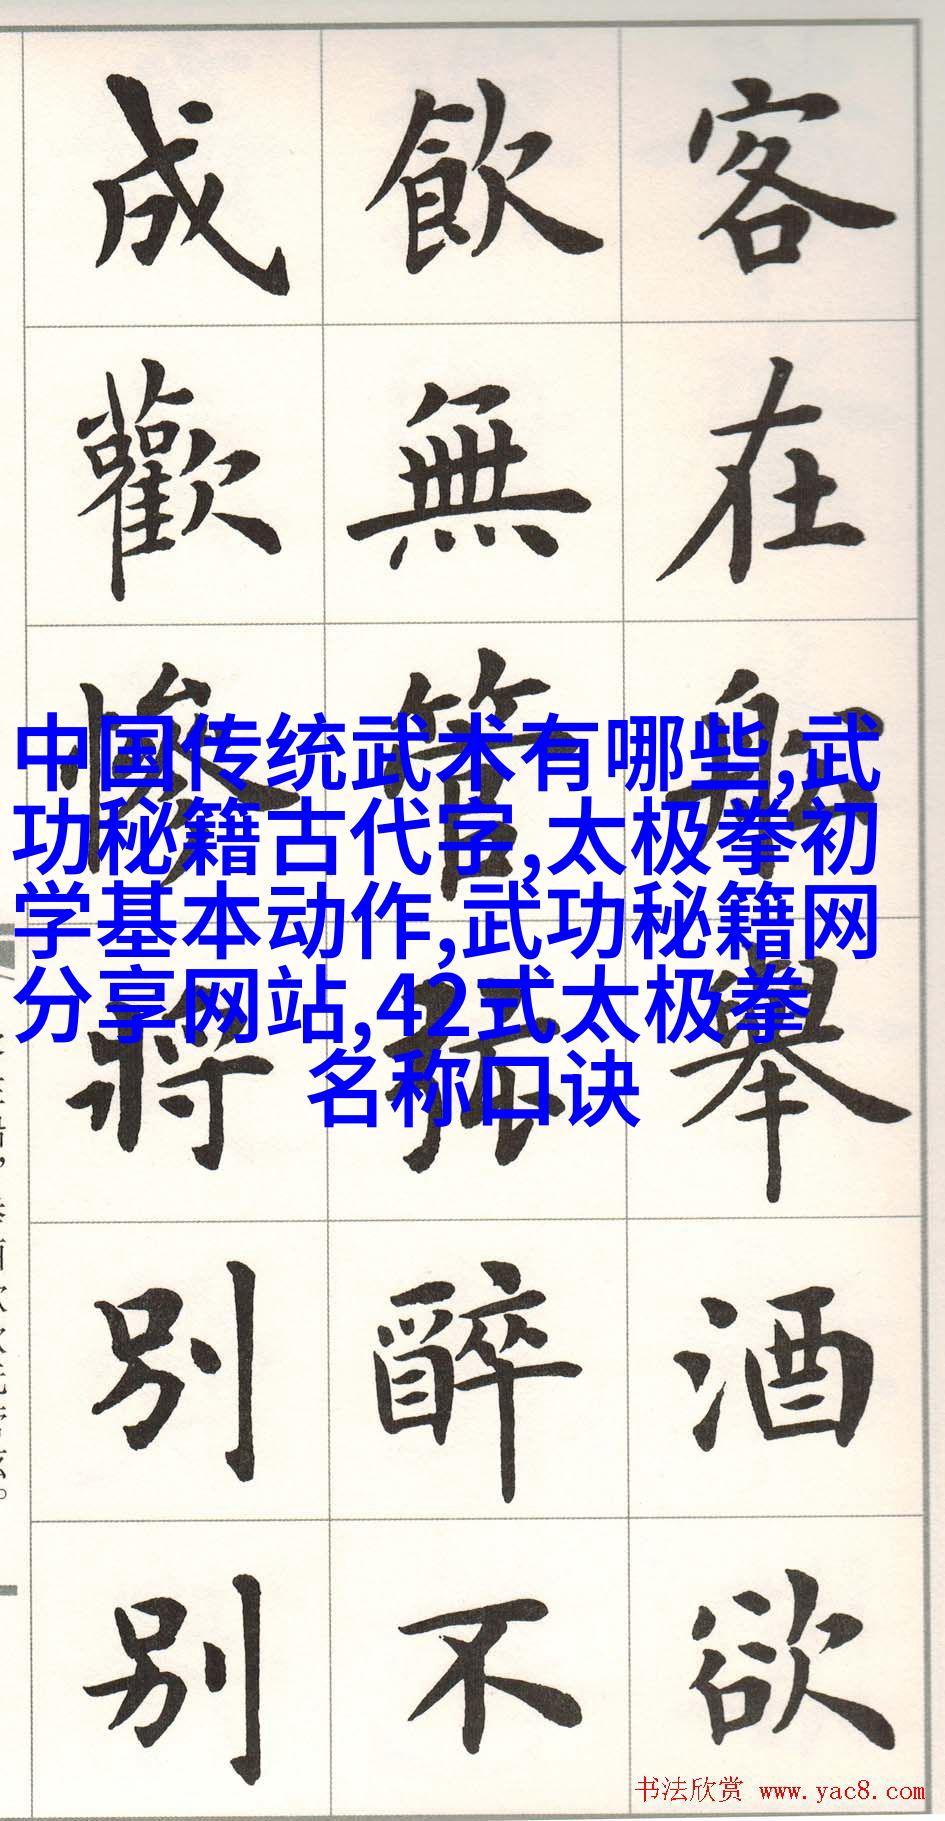 客在舩舉酒欲
飲無管弦醉不
成歡慘將別別
中国传统武术有哪些,武
功秘籍古代字,太极拳初
学基本动作,武功秘籍网
分享网站,42式太极拳
名称口诀
书法欣赏 www.yac8.com